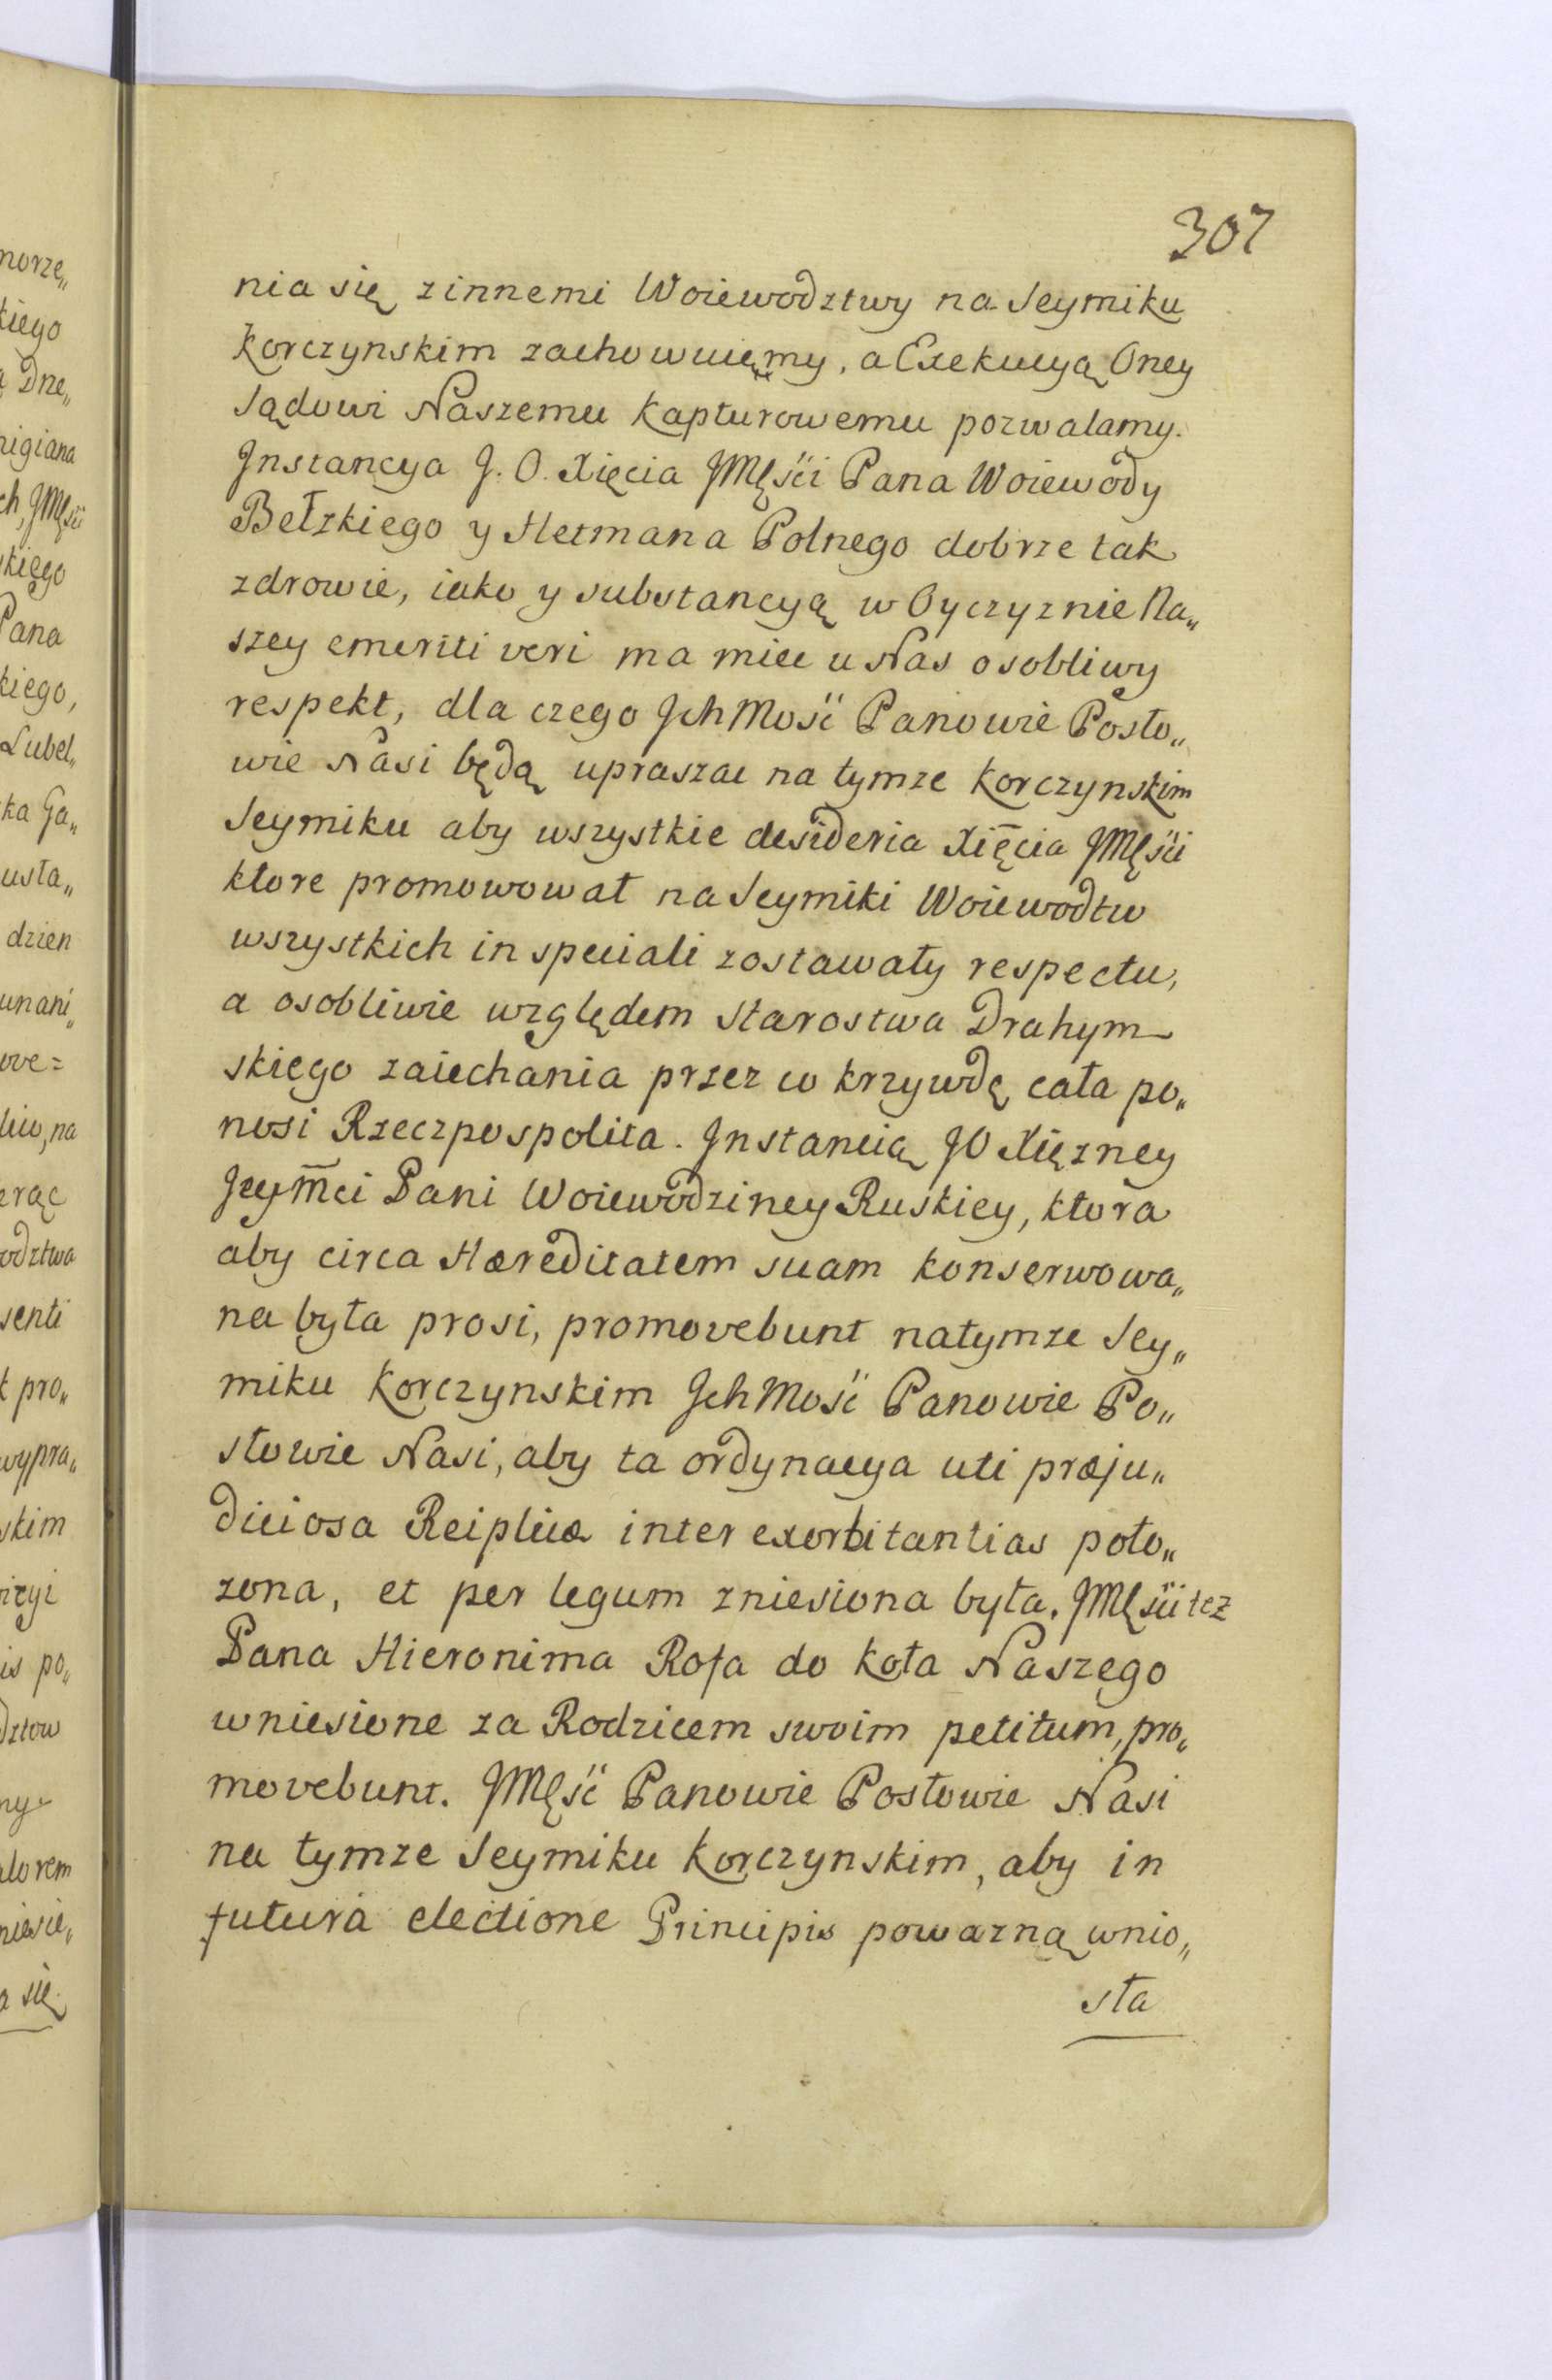 307
nia się zinnemi Woiewodztwy na Seymiku
Korczynskim zachowuięmy, a Exekucyą Oney
Sądowi Naszemu Kapturowemu pozwalamy.
Instancya J. O. Xięcia JMęści Pana Woiewody
Bełzkiego y Hetmana Polnego dobrze tak
zdrowie, iako y substancyą w Oyczyznie Na„
szey emeriti veri ma miec u Nas osobliwy
respekt, dla czego Ich Mość Panowie Posło„
wie Nasi będą upraszac na tymze Korczynskim
Seymiku aby wszystkie desideria Xięcia JMęści
ktore promowował na Seymiki Woiewodtw
wszystkich in speciali zostawały respectu,
a osobliwie względem Starostwa Drahym
skiego zaiechania przez co krzywdę cała po„
nosi Rzeczpospolita. Instancią JO Xiężney
Jeymci Pani Woiewodziney Ruskiey, ktora
aby circa Hæreditatem suam konserwowa„
na była prosi, promovebunt natymze Sey„
miku Korczynskim Ich Mość Panowie Po„
słowie Nasi, aby ta ordynacya uti præju„
diciosa Reiplicæ inter exorbitantias poło„
zona, et per legum zniesiona była. JMęści tez
Pana Hieronima Rosa do koła Naszego
wniesione za Rodzicem swoim petitum, pro„
movebunt. JMęść Panowie Posłowie Nasi
na tymze Seymiku Korczynskim, aby in
futurâ electione Principis powazną wnio„
sła
norze„
kiego
Dne„
nigiana
ch, JMęści
skiego
Pana
kiego,
Lubel„
ka Ga„
usta„
dzien
unani„
ove=
liw, na
erąc
odztwa
senti
t pro„
wypra„
skim
is po„
dztow
ny
lorem
niesie„
a się